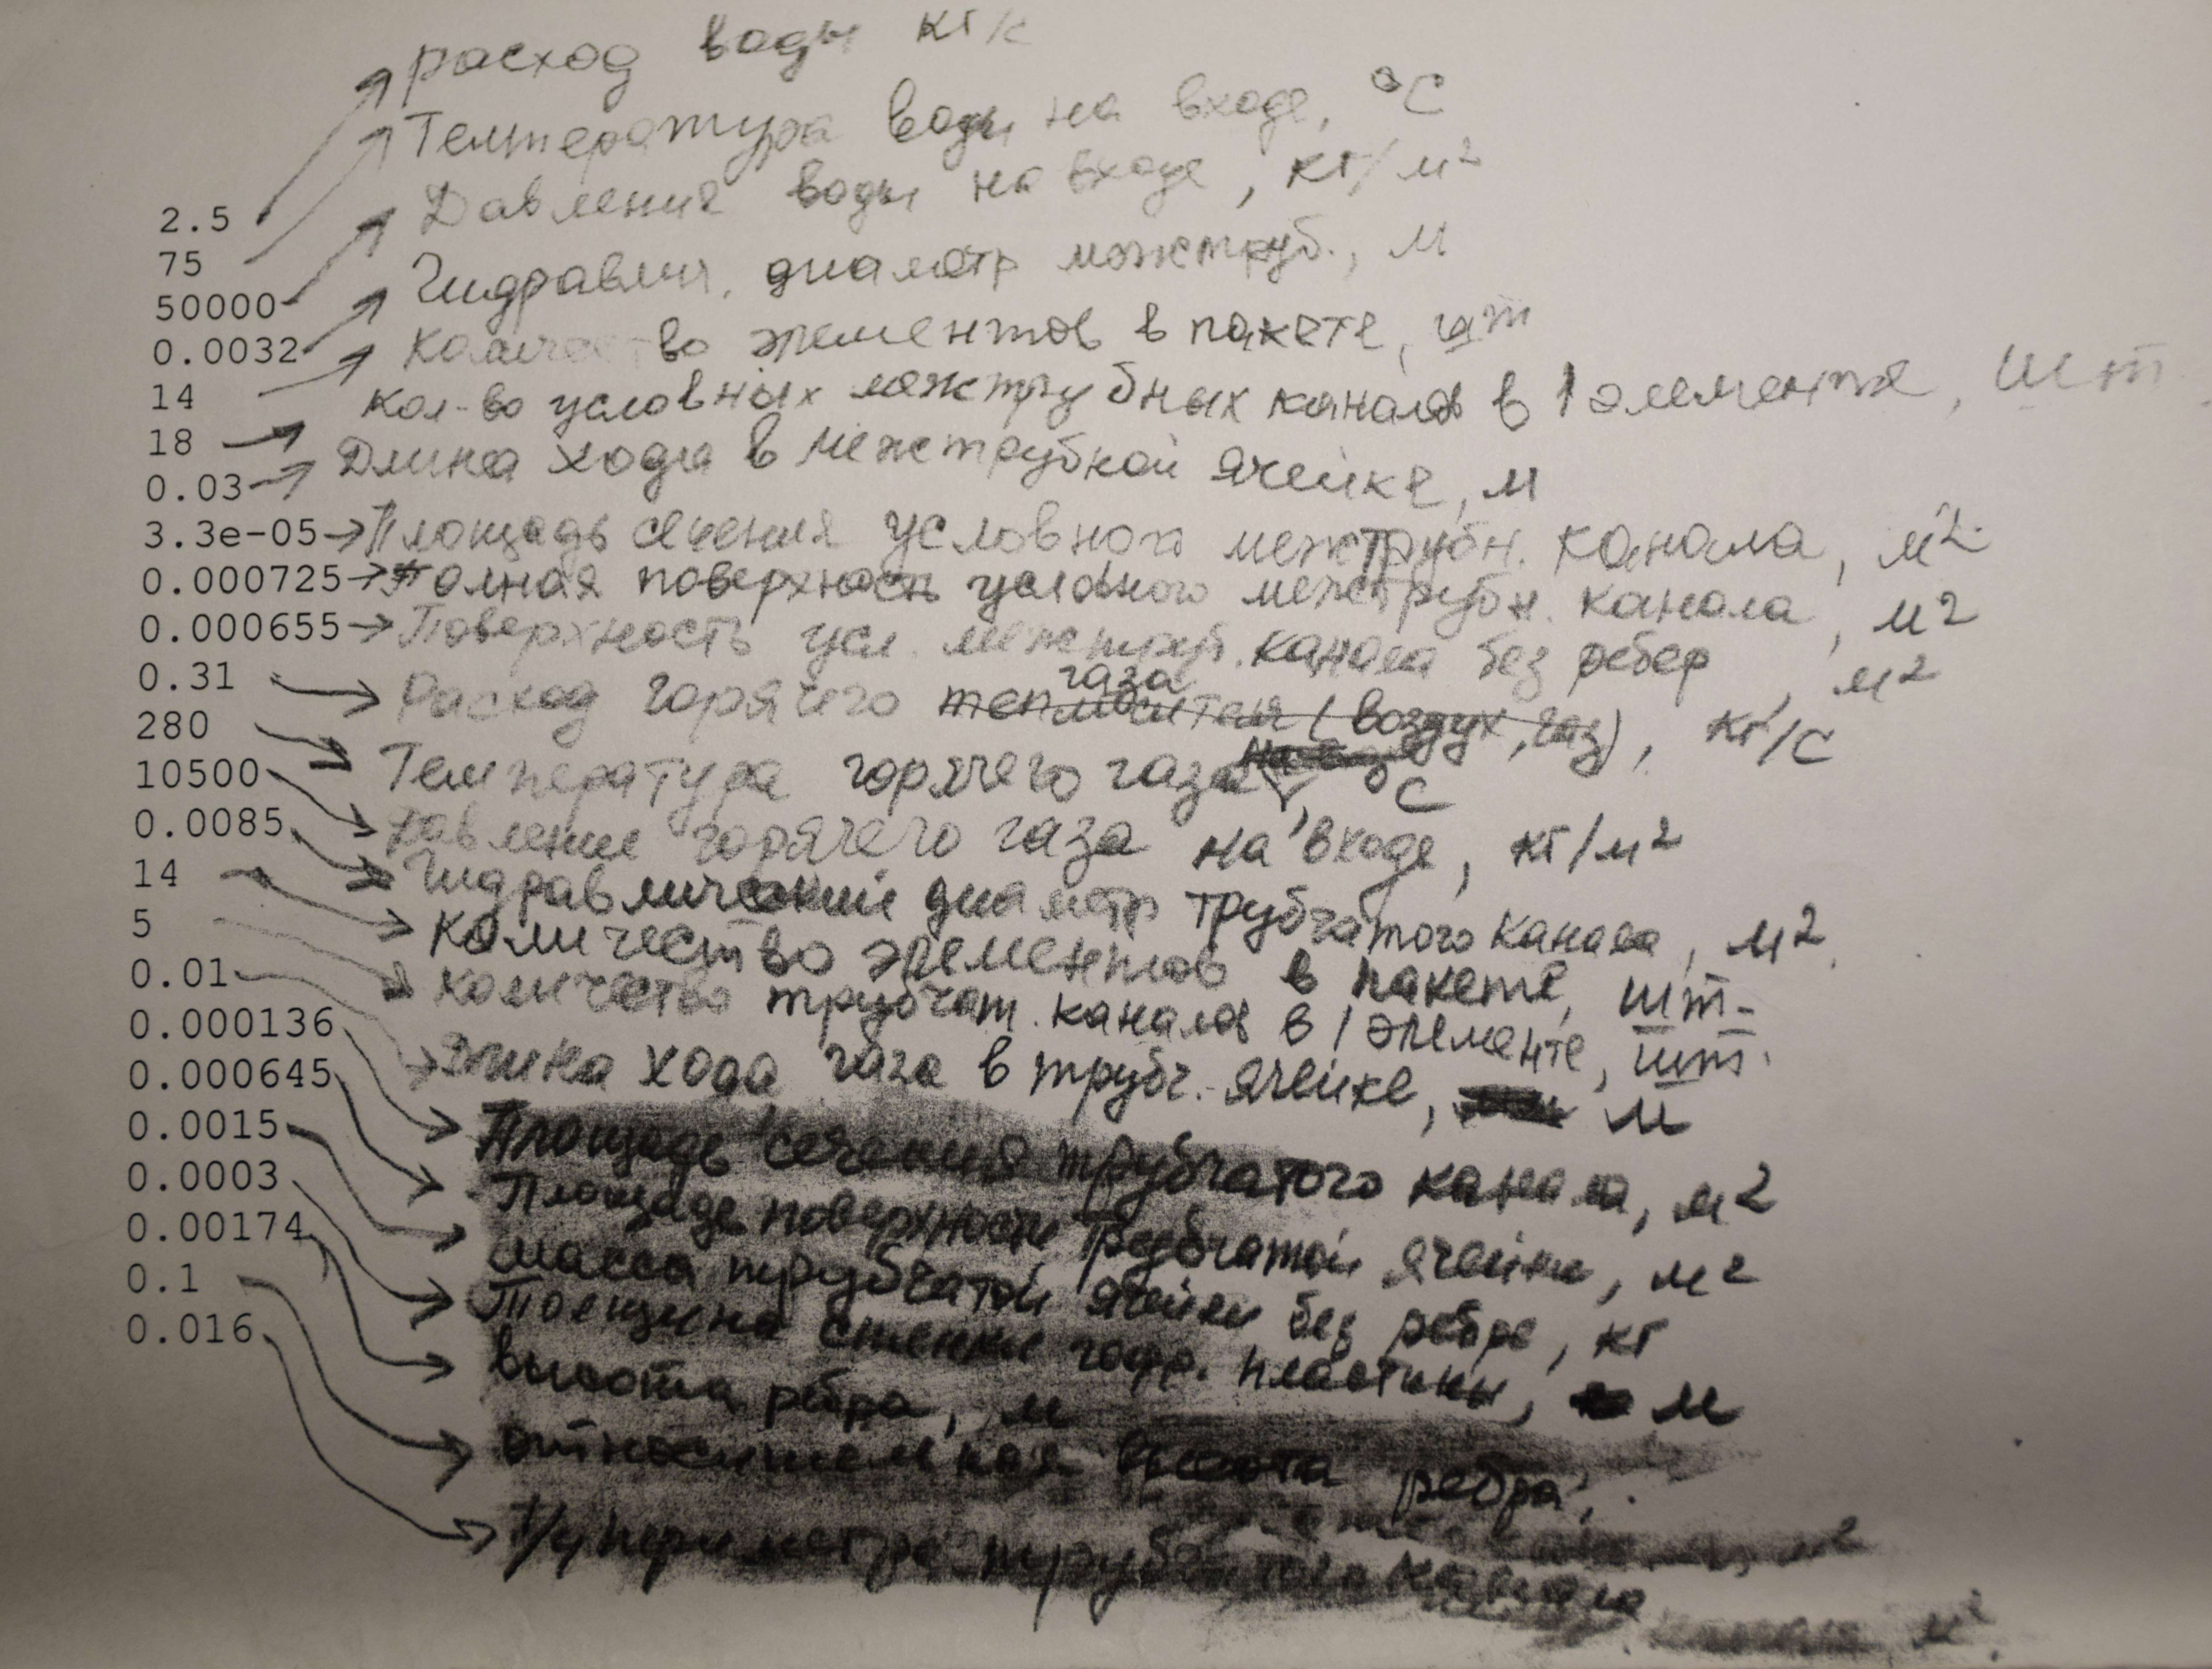 2.5 расход воды кг/с
75 Температура воды на входе, °C
50000 Давления воды на входе, кг/м²
0.0032 Гидравлич. диаметр межтруб., м
14 Количество элементов в пакете, шт
18 Кол-во условных межтрубных каналов в 1 элементе, шт
0.03 Длина хода в межтрубной ячейке, м
3.3e-05 Площадь сечения условного межтрубн. канала, м².
0.000725 Полная поверхность условного межтрубн. канала, м²
0.000655 Поверхность усл. межтруб. канала без ребер, м²
0.31 Расход горячего газа теплоносителя (воздух, газ), кг/с
280 Температура горячего газа, °C
10500 Давление горячего газа на входе, кг/м²
0.0085 Гидравлический диаметр трубчатого канала, м²
14 Количество элементов в пакете, шт.
5 Количество трубчат. каналов в 1 элементе, шт.
0.01 Длина хода газа в трубч. ячейке, м
0.000136 Площадь сечения трубчатого канала, м²
0.000645 Площадь поверхности трубчатой ячейки, м²
0.0015 Масса трубчатой ячейки без ребре, кг
0.0003 Толщина стенки гофр. пластины, м
0.00174 Высота ребра, м
0.1 относительная высота ребра,
0.016 1/4 периметра трубчатого канала